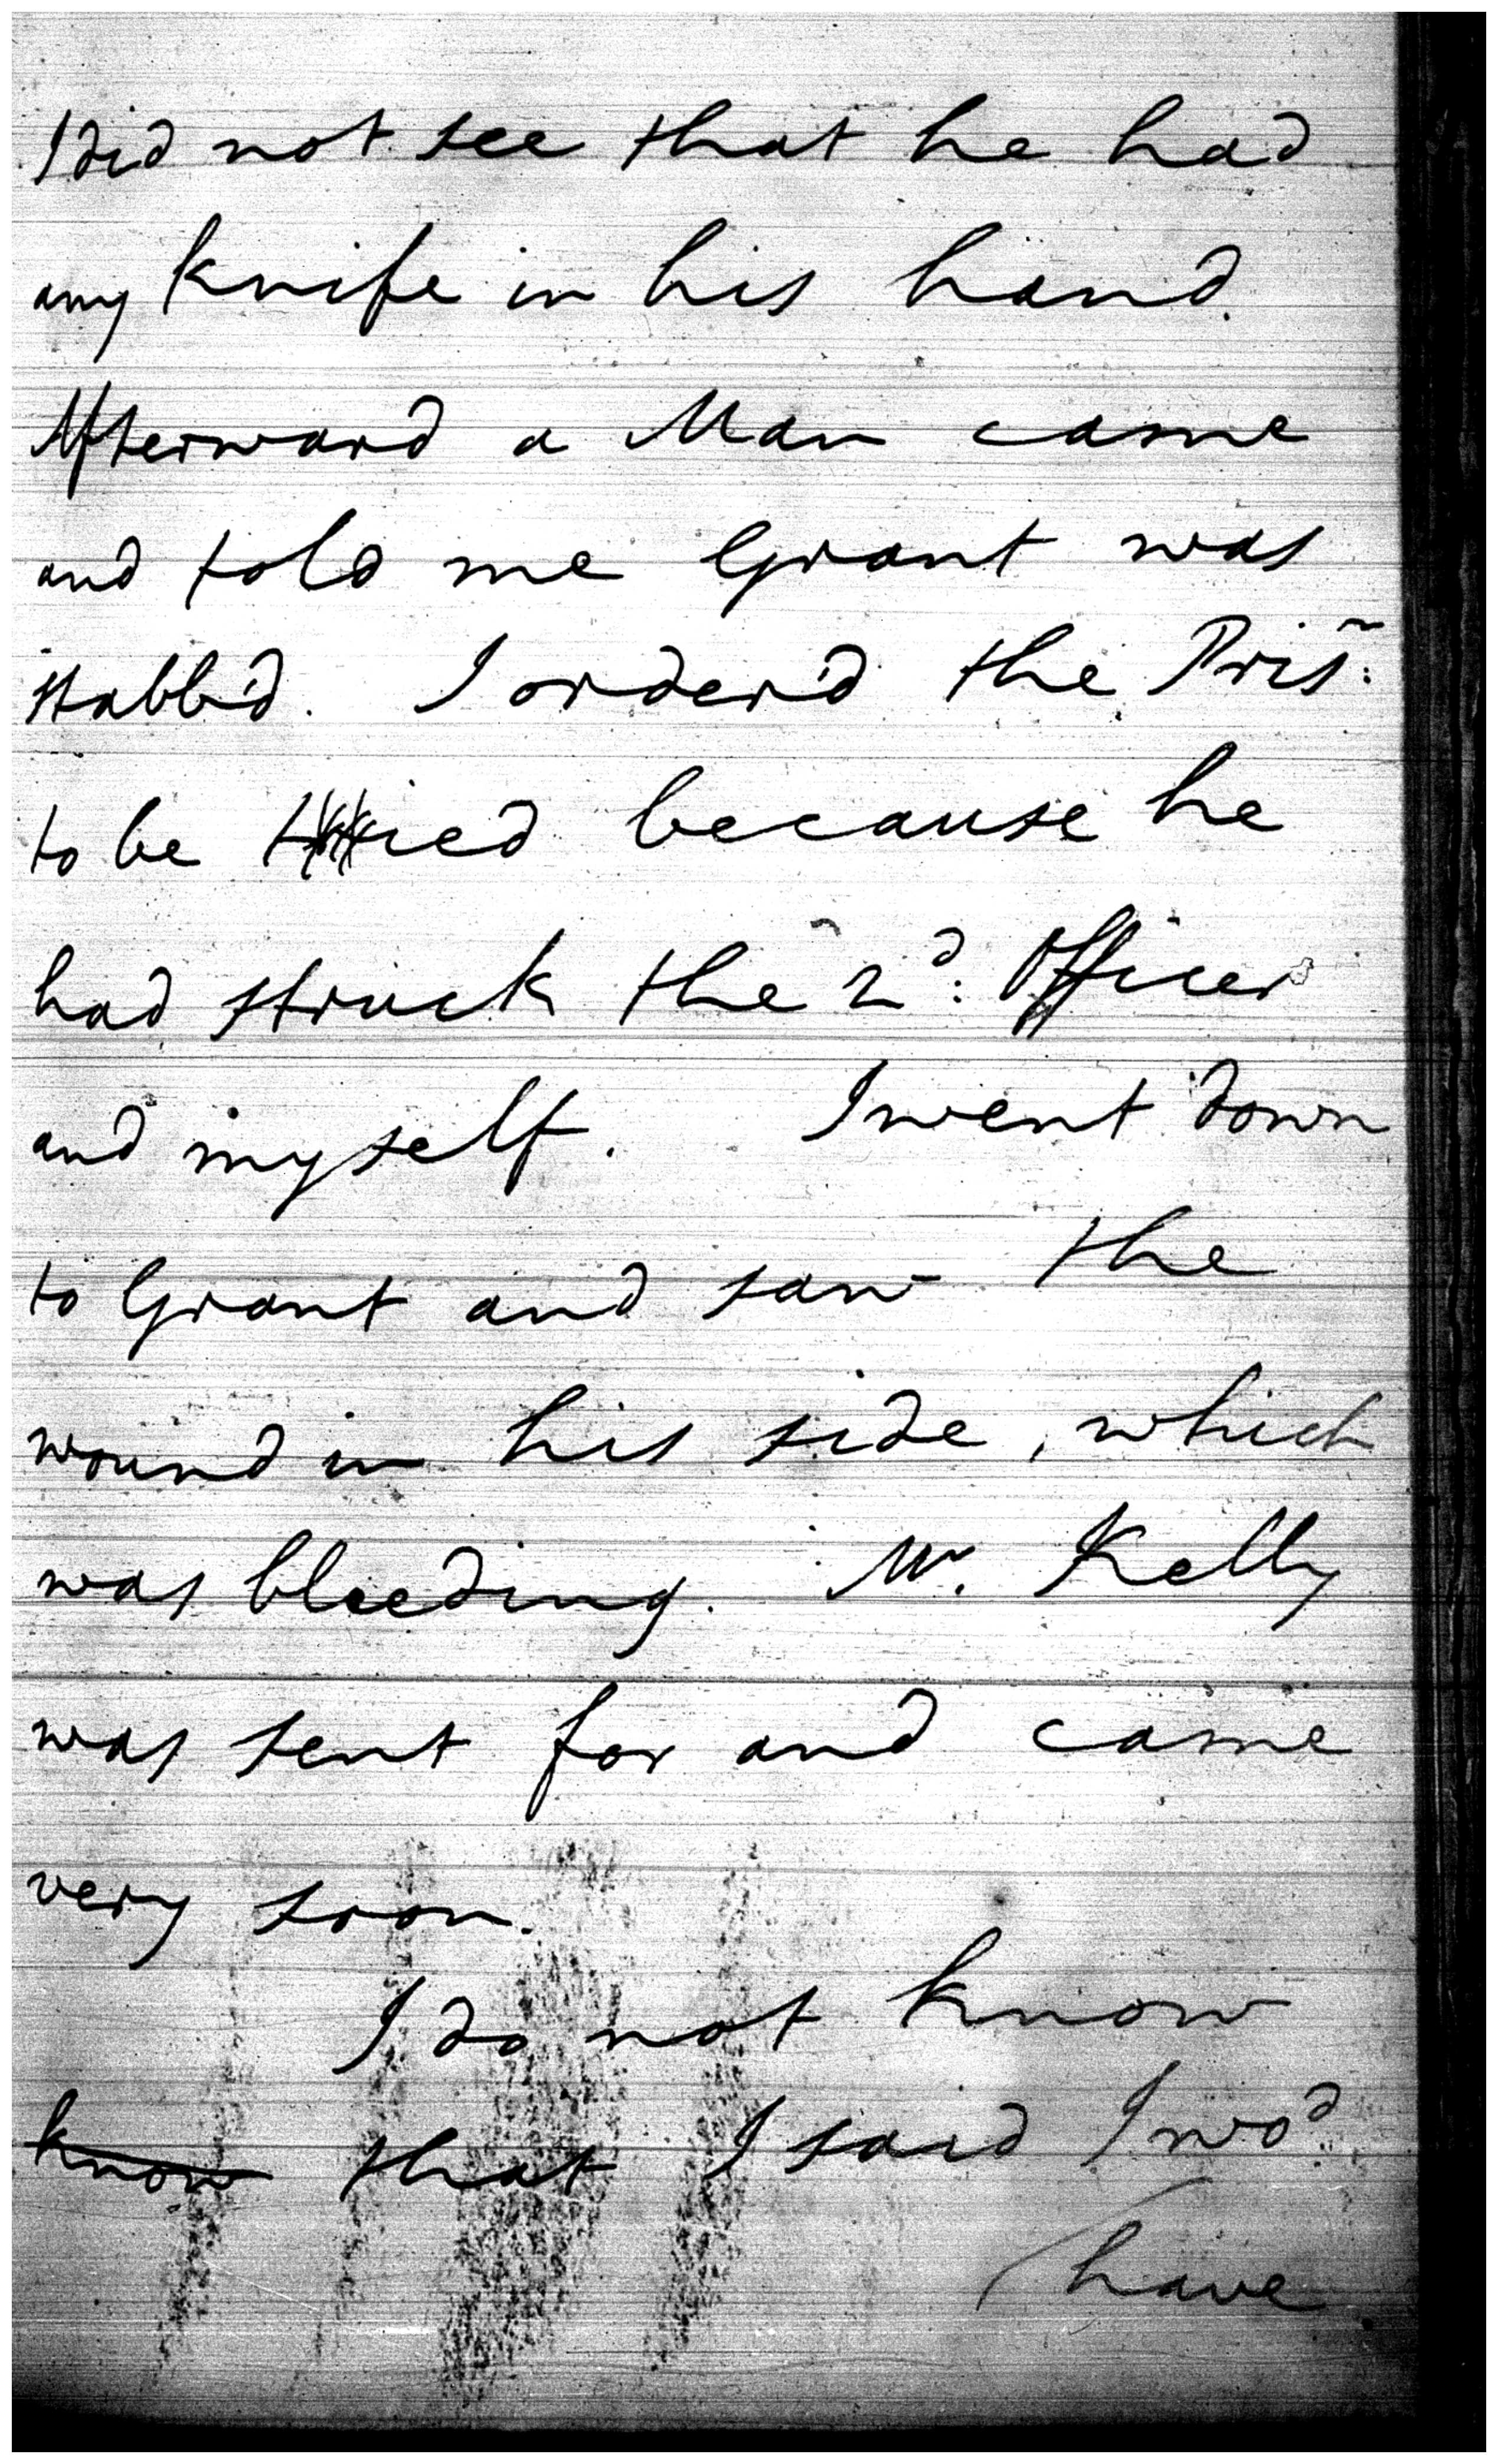 I did not see that he had
any knife in his hand.
Afterward a Man came
and told me Grant was
stabb'd. I order'd the Pris:ⁿ
to be tied because he
had struck the 2ᵈ: Officer
and myself. I went down
to Grant and saw the
wound in his side, which
was bleeding. Mʳ. Kelly
was sent for and came
very soon.
I do not know
know that I said I woᵈ:
have